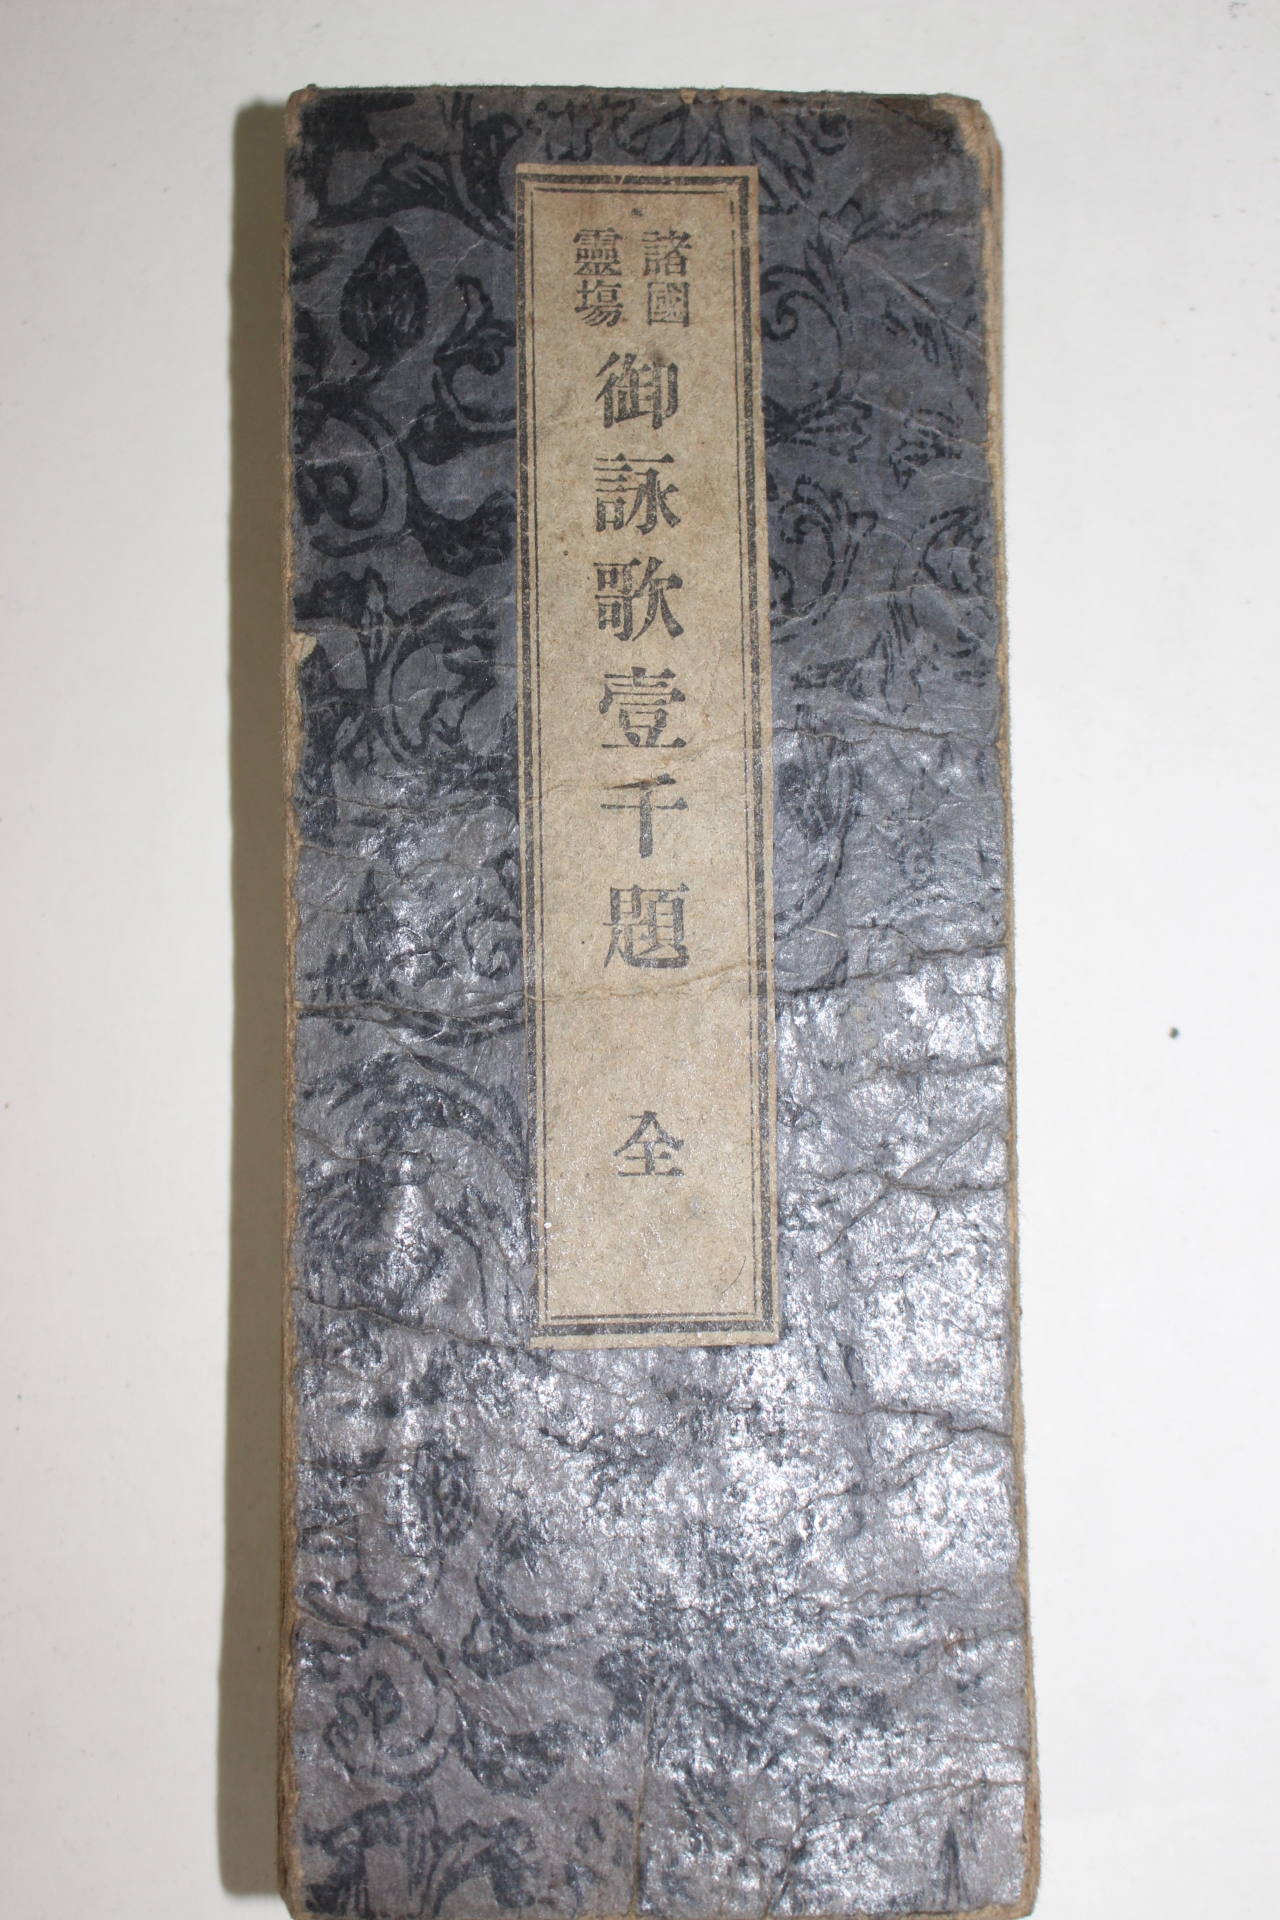 諸國
靈塲
御詠歌壹千題 全